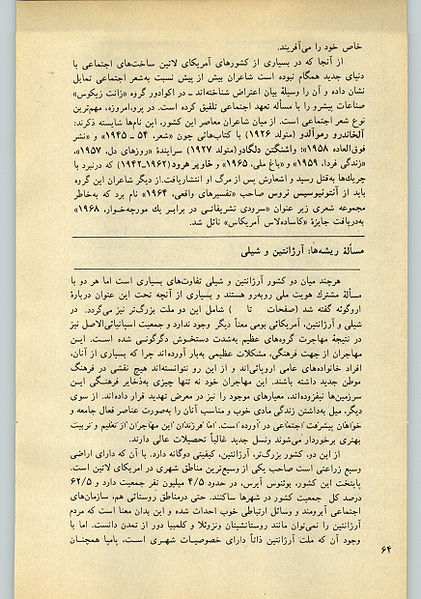 خاص خود را می‌آفریند.
از آنجا که در بسیاری از کشورهای آمریکای لاتین ساخت‌های اجتماعی با
دنیای جدید همگام نبوده است شاعران بیش از پیش نسبت به‌شعر اجتماعی تمایل
نشان داده و آن را وسیلهٔ بیان اعتراض شناخته‌اند ـ در اکوادور گروه «زانت زیکوس»
صناعات پیشرو را با مسألهٔ تعهد اجتماعی تلفیق کرده است. در پرو،امروزه، مهم‌ترین
نوع شعر اجتماعی است. از میان شاعران معاصر این کشور، این نام‌ها شایسته ذکرند:
آلخاندرو رموآلدو (متولد ۱۹۲۶) با کتاب‌هائی چون «شعر، ۵۴ ـ ۱۹۴۵» و «نشر
فوق‌العاده ۱۹۵۸»؛ واشنگتن دلگادو(متولد ۱۹۲۷) سرایندهٔ «روزهای دل، ۱۹۵۷»،
«زندگی فردا، ۱۹۵۹» و «باغ ملی، ۱۹۶۵» و خاویر هرود(۱۹۶۲ـ۱۹۴۲) که درنبرد با
چریك‌ها به‌قتل رسید و اشعارش پس از مرگ او انتشاریافت.از دیگر شاعران این گروه
باید از آنتونیوسیس نروس صاحب «تفسیرهای واقعی، ۱۹۶۴» نام برد که به‌خاطر
مجموعه شعری زیر عنوان «سرودی تشریفاتی در برابر یك مورچه‌خوار، ۱۹۶۸»
به‌دریافت جایزهٔ «کاساده‌لاس آمریکاس» نائل شد.
مسألهٔ ریشه‌ها: آرژانتین و شیلی
هرچند میان دو کشور آرژانتین و شیلی تفاوت‌های بسیاری است اما هر دو با
مسألهٔ مشترك هویت ملی روبه‌رو هستند و بسیاری از آنچه تحت این عنوان دربارهٔ
اروگوئه گفته شد (صفحات تا ) شامل این دو ملت بزرگ‌تر نیز می‌گردد. در
شیلی و آرژانتین، آمریکائی بومی معناً دیگر وجود ندارد و جمعیت اسپانیائی‌الاصل نیز
در نتیجهٔ مهاجرت گروه‌های عظیم به‌شدت دستخوش دگرگونی شده است. ایـن
مهاجران از جهت فرهنگی، مشکلات عظیمی به‌بار آورده‌اند چرا که بسیاری از آنان،
افراد خانواده‌های عامی اروپائی‌اند و از این رو نتوانسته‌اند هیچ نقشی در فرهنگ
موطن جدید داشته باشند. این مهاجران خود نه تنها چیزی به‌ذخایر فرهنگـی ایـن
سرزمین‌ها نیفزوده‌اند، معیارهای موجود را نیز در معرض تهدید قرار داده‌اند. از سوی
دیگر، میل به‌داشتن زندگی مادی خوب و مناسب آنان را به‌صورت عناصر فعال جامعه و
خواهان پیشرفت اجتماعی در آورده است. اما فرزندان این مهاجران از تعلیم و تربیت
بهتری برخوردار می‌شوند ونسل جدید غالباً تحصیلات عالی دارند.
از این دو، کشور بزرگ‌تر، آرژانتین، کیفیتی دوگانه دارد. با آن که دارای اراضی
وسیع زراعتی است صاحب یکی از وسیع‌ترین مناطق شهری در امریکای لاتین است.
پایتخت این کشور، بوئنوس آیرس، در حدود ۴/۵ میلیون نفر جمعیت دارد و ۶۲/۵
درصد کل جمعیت کشور در شهرها ساکنند. حتی درمناطق روستائی هم، سازمان‌های
اجتماعی آبرومند و وسائل ارتباطی خوب احداث شده و این بدان معنا است که مردم
آرژانتین را نمی‌توان مانند روستانشینان ونزوئلا و کلمبیا دور از تمدن دانست. اما با
وجود آن که ملت آرژانتین ذاتاً دارای خصوصیـات شهـری اسـت، پامپا همچنـان
۶۴